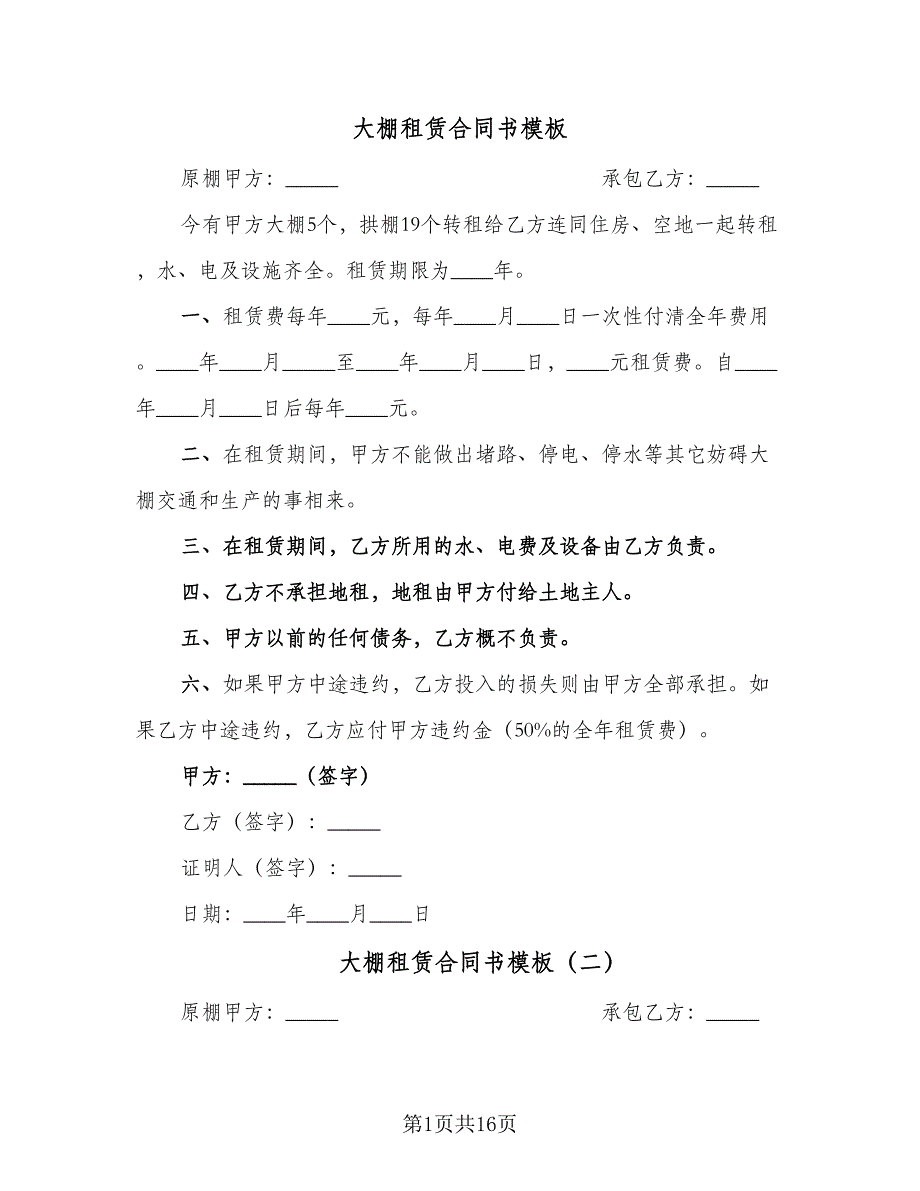 大棚租赁合同书模板
原棚甲方：_____ 承包乙方：_____
今有甲方大棚5个，拱棚19个转租给乙方连同住房、空地一起转租
，水、电及设施齐全。租赁期限为____年。
一、租赁费每年____元，每年____月____日一次性付清全年费用
。____年____月_____至____年____月____日，____元租赁费。自____
年____月____日后每年____元。
二、在租赁期间，甲方不能做出堵路、停电、停水等其它妨碍大
棚交通和生产的事相来。
三、在租赁期间，乙方所用的水、电费及设备由乙方负责。
四、乙方不承担地租，地租由甲方付给土地主人。
五、甲方以前的任何债务，乙方概不负责。
六、如果甲方中途违约，乙方投入的损失则由甲方全部承担。如
果乙方中途违约，乙方应付甲方违约金（50%的全年租赁费）。
甲方：_____（签字）
乙方（签字）：_____
证明人（签字）：_____
日期：____年____月____日
大棚租赁合同书模板（二）
原棚甲方：_____ 承包乙方：_____
第1页共16页